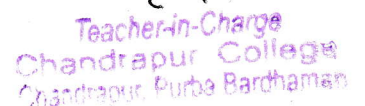 Teacher-in-Charge
Chandrapur College
Chandrapur, Purba Bardhaman